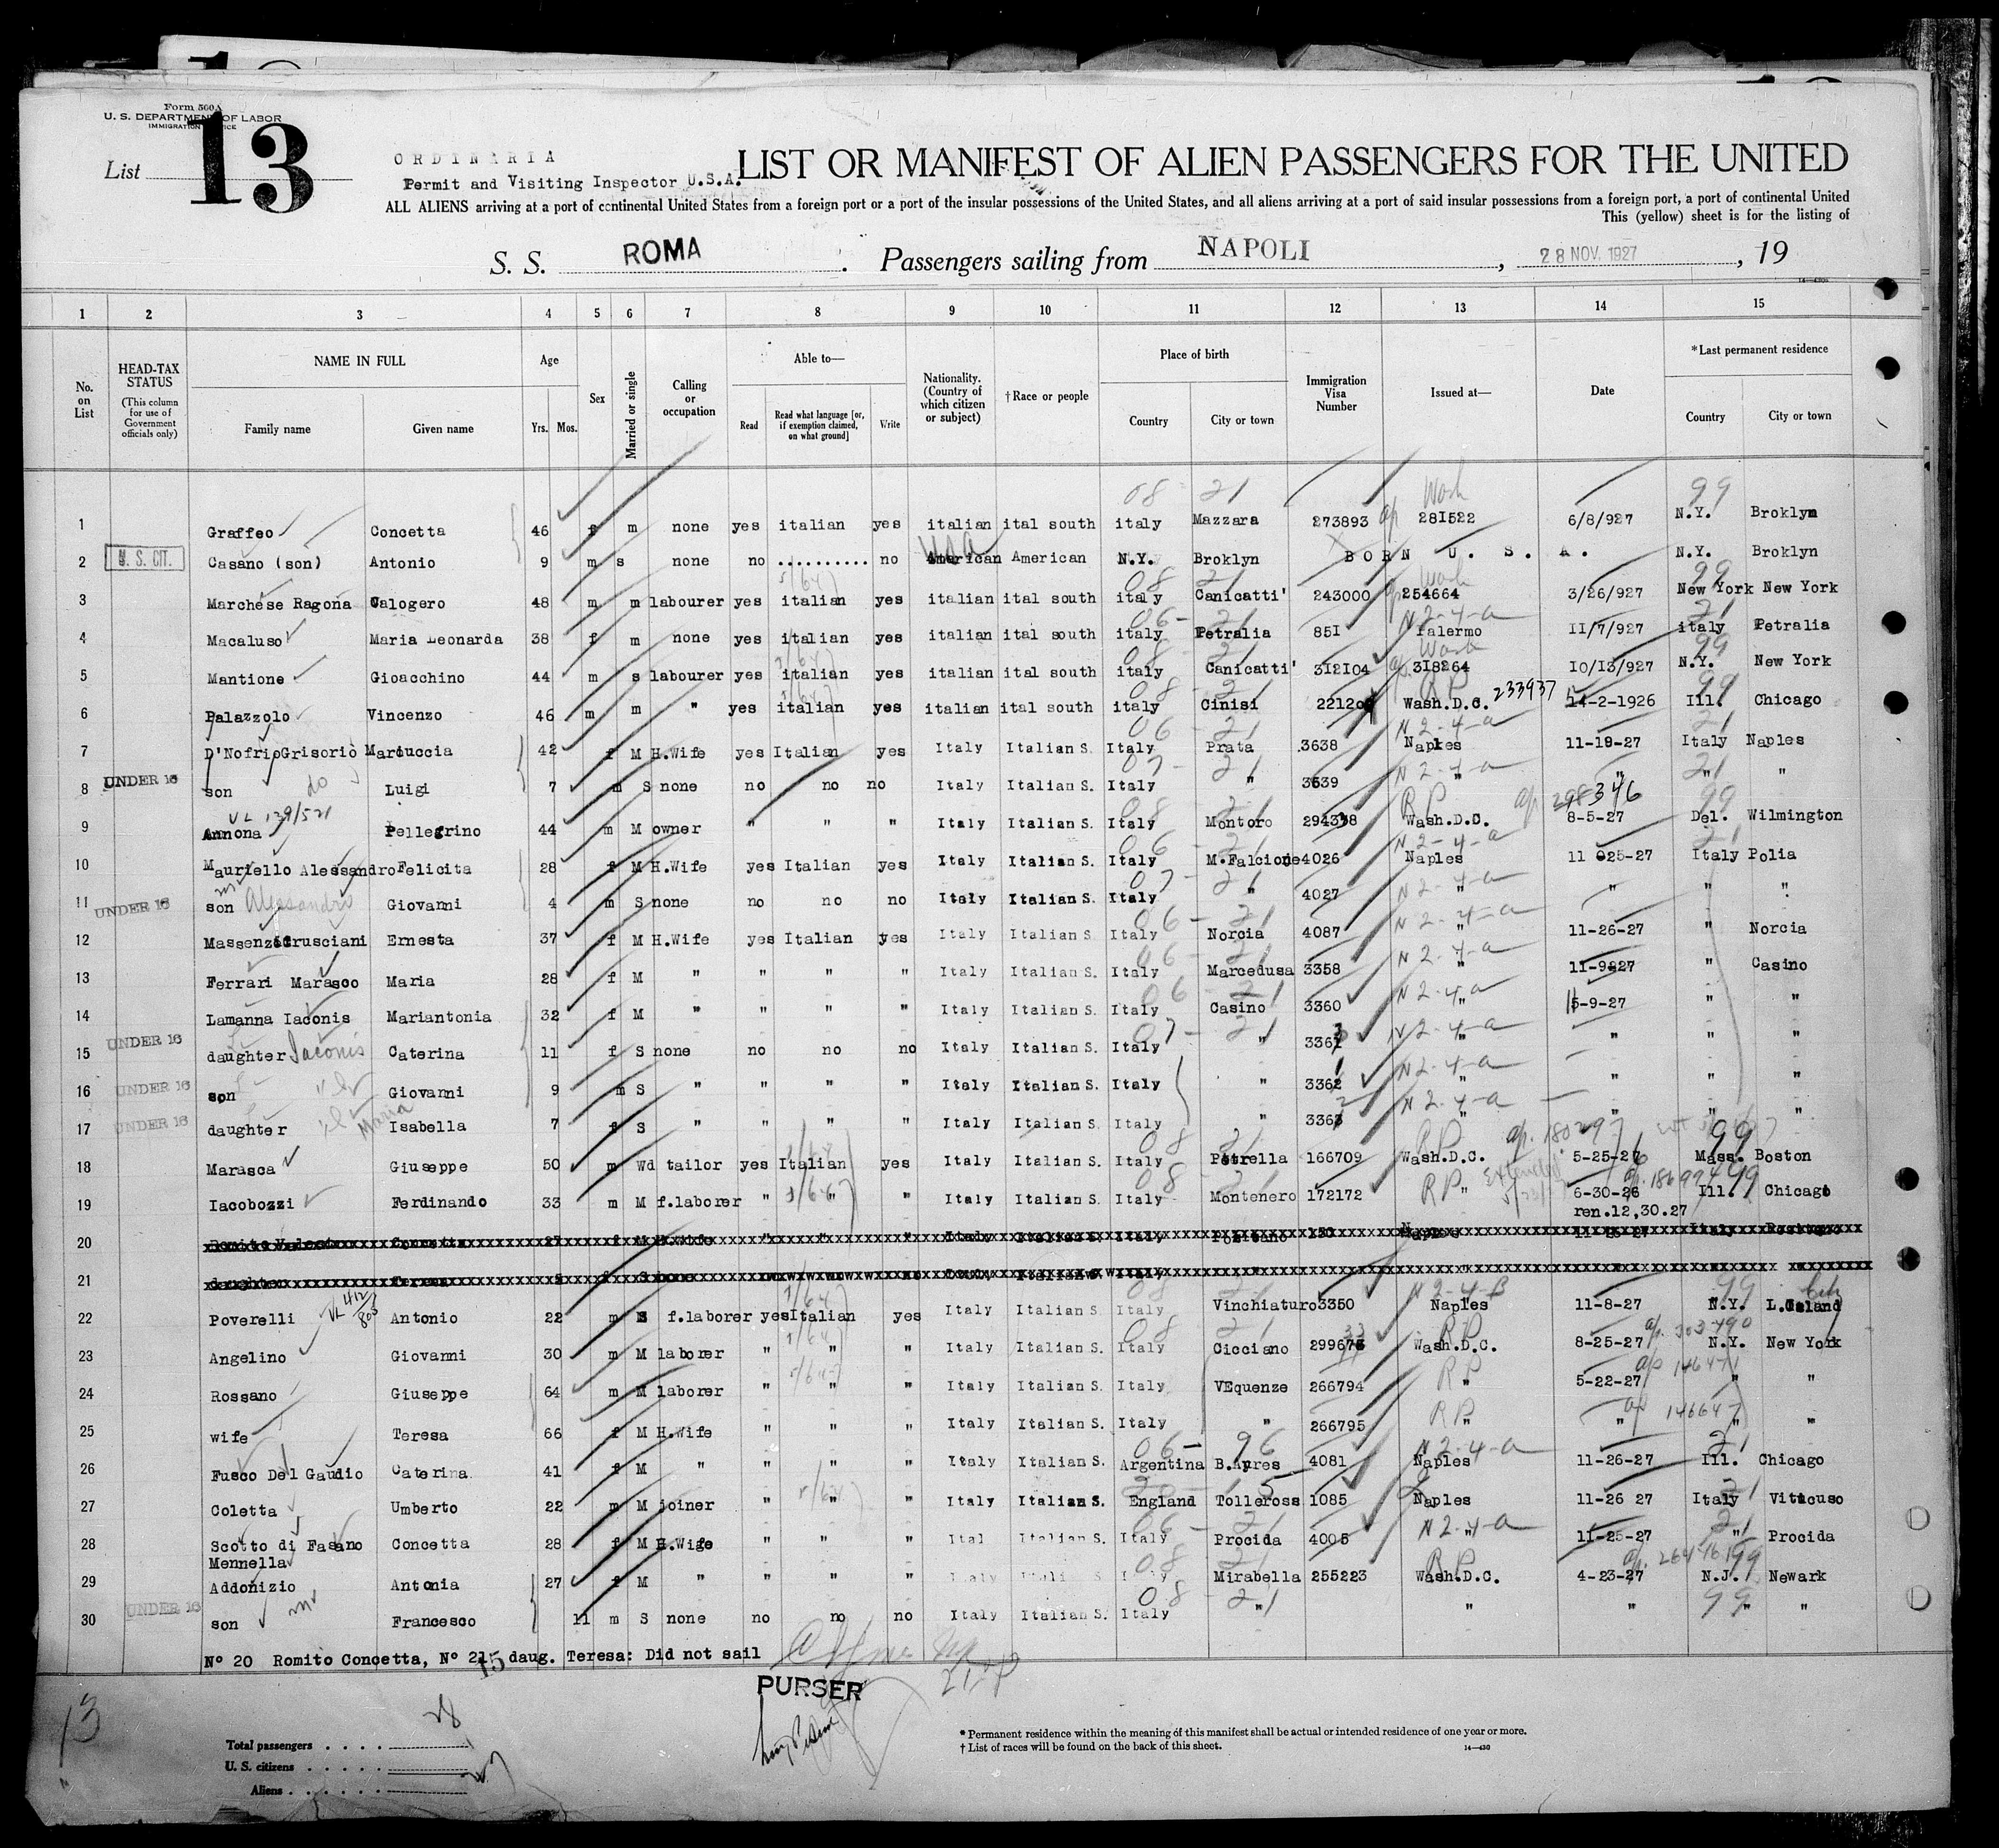 Form 500A
U. S. DEPARTMENT OF LABOR
IMMIGRATION SERVICE
List 13
ORDINARIA
Permit and Visiting Inspector U.S.A.
LIST OR MANIFEST OF ALIEN PASSENGERS FOR THE UNITED
ALL ALIENS arriving at a port of continental United States from a foreign port or a port of the insular possessions of the United States, and all aliens arriving at a port of said insular possessions from a foreign port, a port of continental United
This (yellow) sheet is for the listing of
S. S. ROMA. Passengers sailing from NAPOLI, 28 NOV. 1927, 19
1 2 3 4 5 6 7 8 9 10 11 12 13 14 15
No. on List
HEAD-TAX STATUS (This column for use of Government officials only)
NAME IN FULL
Family name Given name
Age Yrs. Mos.
Sex
Married or single
Calling or occupation
Able to—
Read Read what language [or, if exemption claimed, on what ground] Write
Nationality. (Country of which citizen or subject)
†Race or people
Place of birth
Country City or town
Immigration Visa Number
Issued at—
Date
*Last permanent residence
Country City or town
08 21 Wash 99
1 Graffeo Concetta 46 f m none yes italian yes italian ital south italy Mazzara 273893 ap 281522 6/8/927 N.Y. Broklyn
2 U. S. CIT. Casano (son) Antonio 9 m s none no .......... no American USA American N.Y. Broklyn BORN U. S. A. N.Y. Broklyn
3 Marchese Ragona Calogero 48 m m labourer yes italian yes italian ital south italy Canicatti' 243000 254664 3/26/927 New York New York
4 Macaluso Maria Leonarda 38 f m none yes italian yes italian ital south italy Petralia 851 Palermo 11/7/927 italy Petralia
5 Mantione Gioacchino 44 m s labourer yes italian yes italian ital south italy Canicatti' 312104 318264 10/13/927 N.Y. New York
6 Palazzolo Vincenzo 46 m m " yes italian yes italian ital south italy Cinisi 22120 Wash.D.C. 233937 14-2-1926 Ill. Chicago
7 D'Nofrio Grisorio Marcuccia 42 f M H.Wife yes Italian yes Italy Italian S. Italy Prata 3638 Naples 11-19-27 Italy Naples
8 UNDER 16 son do Luigi 7 m S none no no no Italy Italian S. Italy " 3639 " " " "
VL 139/521
9 Annona Pellegrino 44 m M owner " " " Italy Italian S. Italy Montoro 294338 Wash.D.C. ap 298346 8-5-27 Del. Wilmington
10 Mauriello Alessandro Felicita 28 f M H.Wife yes Italian yes Italy Italian S. Italy M.Falcione 4026 Naples 11 25-27 Italy Polia
11 UNDER 16 son Alessandro Giovanni 4 m S none no no no Italy Italian S. Italy " 4027 " " " "
12 Massenzi Crusciani Ernesta 37 f M H.Wife yes Italian yes Italy Italian S. Italy Norcia 4087 " 11-26-27 " Norcia
13 Ferrari Marasco Maria 28 f M " " " " Italy Italian S. Italy Marcedusa 3358 " 11-9-27 " Casino
14 Lamanna Iaconis Mariantonia 32 f M " " " " Italy Italian S. Italy Casino 3360 " 11-9-27 " "
15 UNDER 16 daughter Iaconis Caterina 11 f S none no no no Italy Italian S. Italy " 3361 " " " "
16 UNDER 16 son Giovanni 9 m S " " " " Italy Italian S. Italy " 3362 " " "
17 UNDER 16 daughter Maria Isabella 7 f S " " " " Italy Italian S. Italy " 3363 " " "
18 Marasca Giuseppe 50 m Wd tailor yes Italian yes Italy Italian S. Italy Petrella 166709 Wash.D.C. 5-25-26 Mass. Boston
19 Iacobozzi Ferdinando 33 m M f.laborer " " " Italy Italian S. Italy Montenero 172172 RP " Extended 6-30-26 Ill. Chicago
ren.12,30.27
20 Romito Concetta 27 f M H.Wife " " " Italy Italian S. Italy Positano 150 Naples Italy Positano
21 daughter Teresa Italian S. Italy
22 Poverelli VL 412/803 Antonio 22 m S f.laborer yes Italian yes Italy Italian S. Italy Vinchiaturo 3350 Naples 11-8-27 N.Y. L.Island
23 Angelino Giovanni 30 m M laborer " " " Italy Italian S. Italy Cicciano 29967 Wash.D.C. 8-25-27 ap. 303490 N.Y. New York
24 Rossano Giuseppe 64 m M laborer " " " Italy Italian S. Italy VEquenze 266794 RP " 5-22-27 " "
25 wife Teresa 66 f M H.Wife " " " Italy Italian S. Italy " 266795 RP " " " "
26 Fusco Del Gaudio Caterina 41 f M " " " " Italy Italian S. Argentina B.Ayres 4081 Naples 11-26-27 Ill. Chicago
27 Coletta Umberto 22 m M joiner " " " Italy Italian S. England Tolleross 1085 Naples 11-26 27 Italy Viticuso
28 Scotto di Fasano Concetta 28 f M H.Wife " " " Ital Italian S. Italy Procida 4005 " 11-25-27 " Procida
Mennella
29 Addonizio Antonia 27 f M " " " " Italy Italian S. Italy Mirabella 255223 Wash.D.C. 4-23-27 N.J. Newark
30 UNDER 16 son Francesco 11 m S none no no no Italy Italian S. Italy " " " " "
N° 20 Romito Concetta, N° 21 daug. Teresa: Did not sail
PURSER
13
Total passengers . . . . 28
U. S. citizens . . . . .
Aliens . . . . . .
* Permanent residence within the meaning of this manifest shall be actual or intended residence of one year or more.
† List of races will be found on the back of this sheet.
14—430